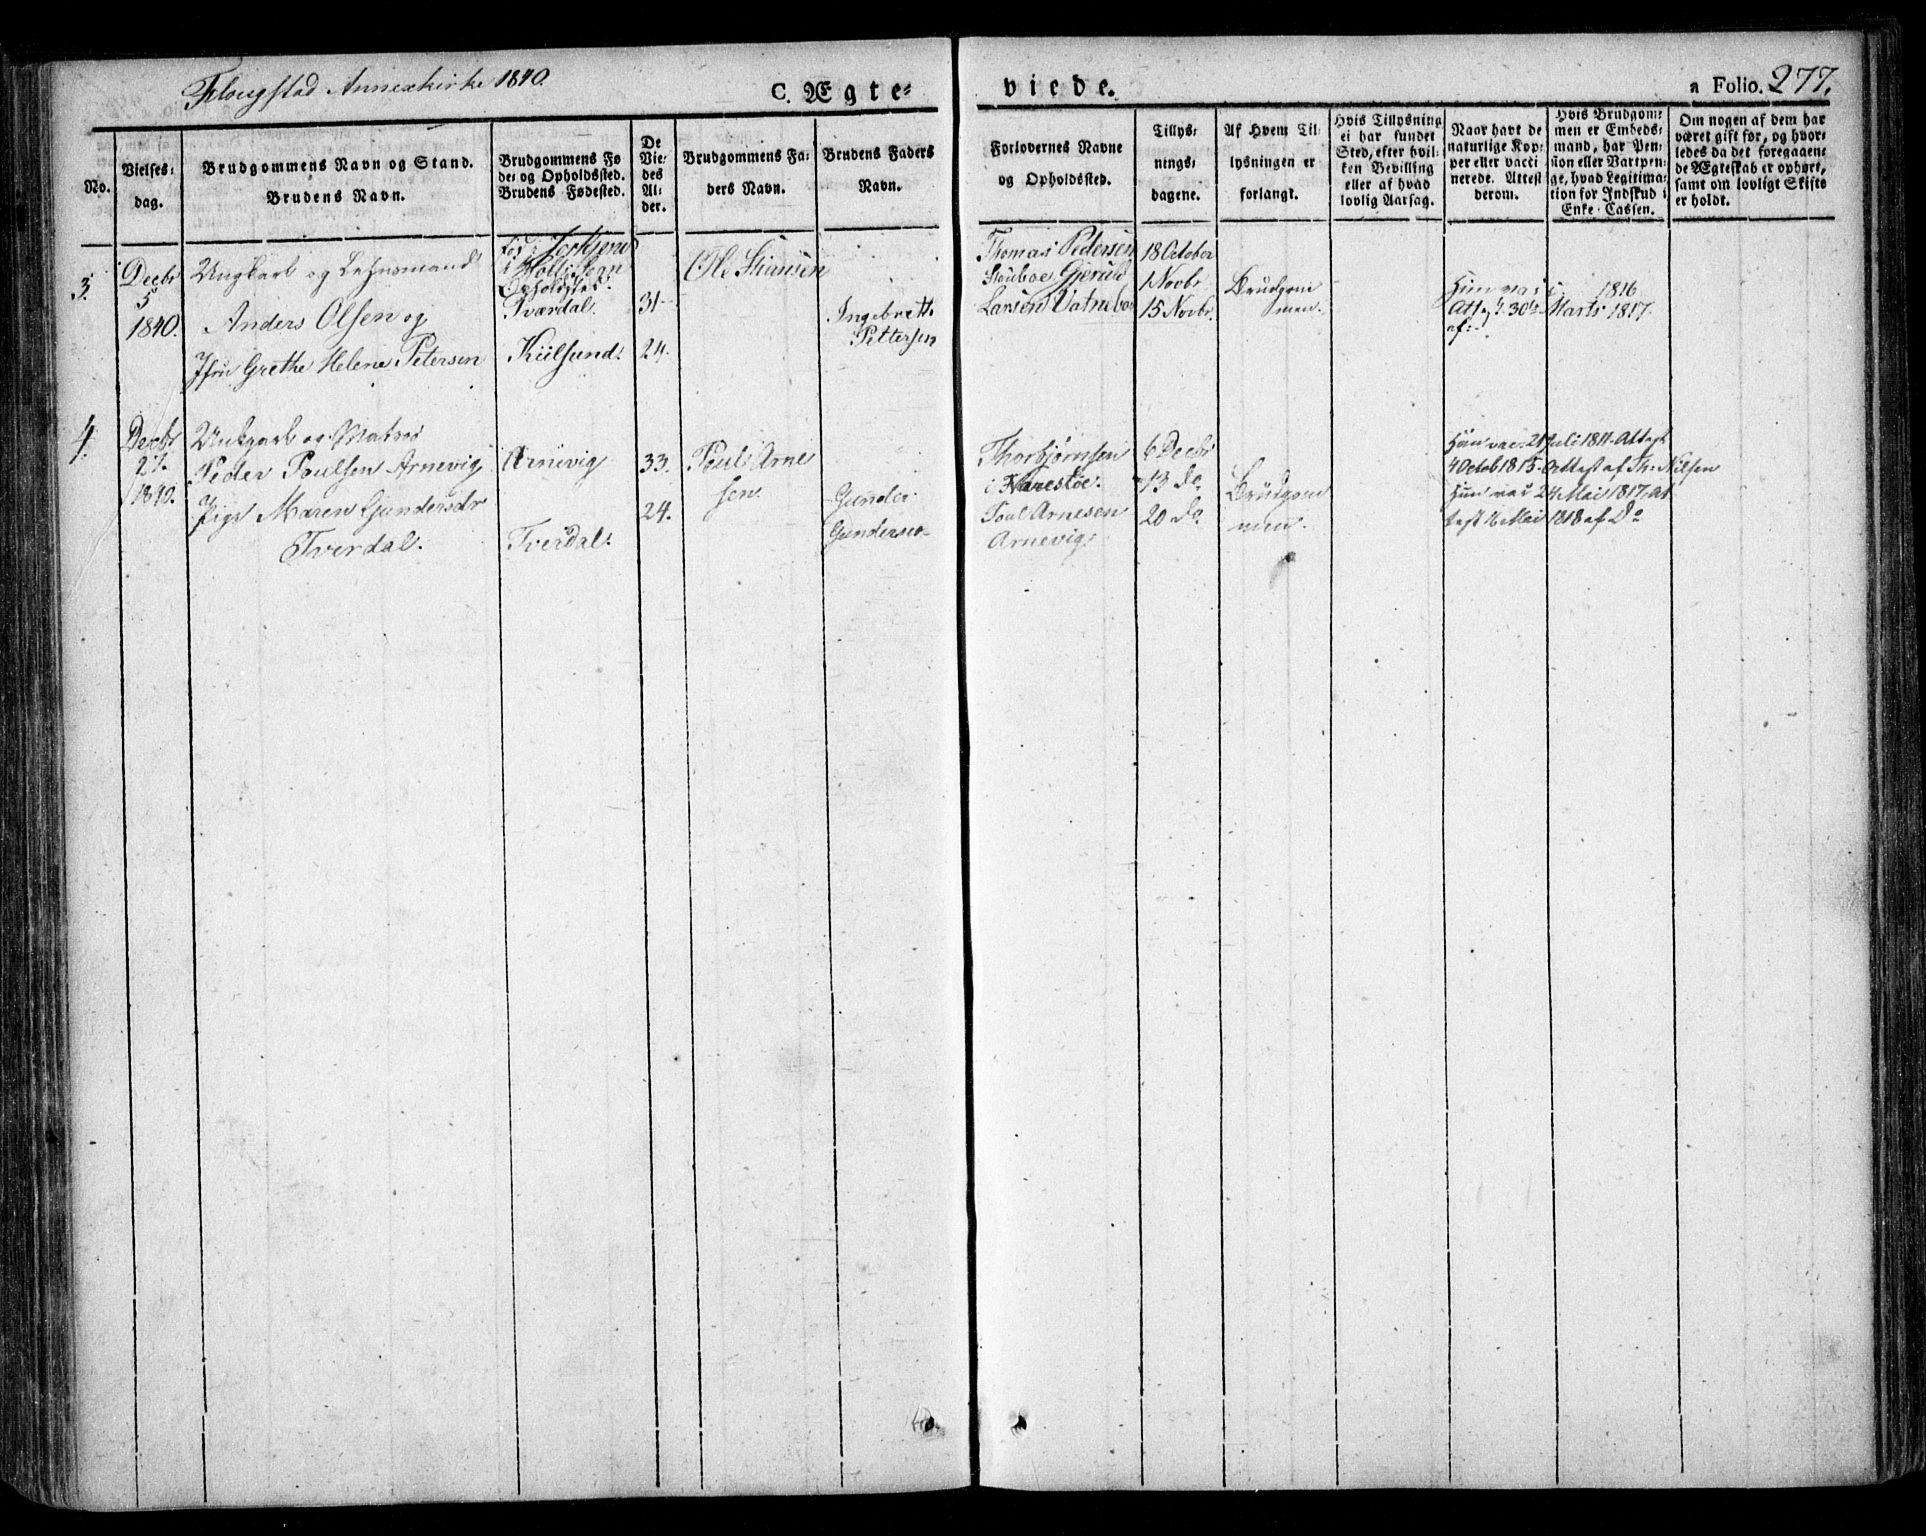 Flougstad Annexkirke 1840.
C. Ægte-
viede.
a Folio. 277.
No.
Vielses-
dag.
Brudgommens Navn og Stand.
Brudens Navn.
Brudgommens Fø
de- og Opholdssted.
Brudens Fødested.
De
Vie-
des
Al-
der.
Brudgommens Fa-
ders Navn.
Brudens Faders
Navn.
Forlovernes Navne
og Opholdssted.
Tillys-
nings-
dagene.
Af Hvem Til-
lysningen er
forlangt.
Hvis Tillysning
ei har fundet
Sted, efter hvil-
ken Bevilling
eller af hvad
lovlig Aarsag.
Naar havt de
naturlige Kop-
per eller vacci
nerede. Attest
derom.
Hvis Brudgom-
men er Embeds-
mand, har Pen-
sion eller Vartpen-
ge, hvad Legitima-
tion for Indskud i
Enke-Cassen.
Om nogen af dem har
været gift før, og hvor-
ledes da det foregaaen-
de Ægteskab er ophørt,
samt om lovligt Skifte
er holdt.
3.
Decbr
5
1840.
Ungkarl og Lehnsmand
Anders Olsen og
Jfru Grethe Helene Petersen
Opholdsted
Tværdal.
Kiilsund.
31
24.
Ole
Ingebrett
Pettersen
Thomas Pedersen
Stuboe Gjeruld
Larsen Vatneboe
18 October
1 Novbr
15 Novbr.
Brudgom
men.
Hun var i 1816
Att. 30te Marts 1817
af:
4.
Decbr
27.
1840.
Unkarl og Matros
Peder Poulsen Arnevig
og
Pige Maren Gundersdr
Tverdal.
Arnevig
Tverdal.
33.
24.
Poul Arne
sen.
Gunder
Gundersen
Thorbjørnsen
i Narestøe.
Poul Arnesen
Arnevig.
6 Decbr
13 do
20 do
Brudgom
men.
Han vac. 21 Juli 1811. Attest
4 Octob 1815. Attest af Th: Nilsen
Hun vac 24 Mai 1817. At
test 6 Mai 1818 af Do